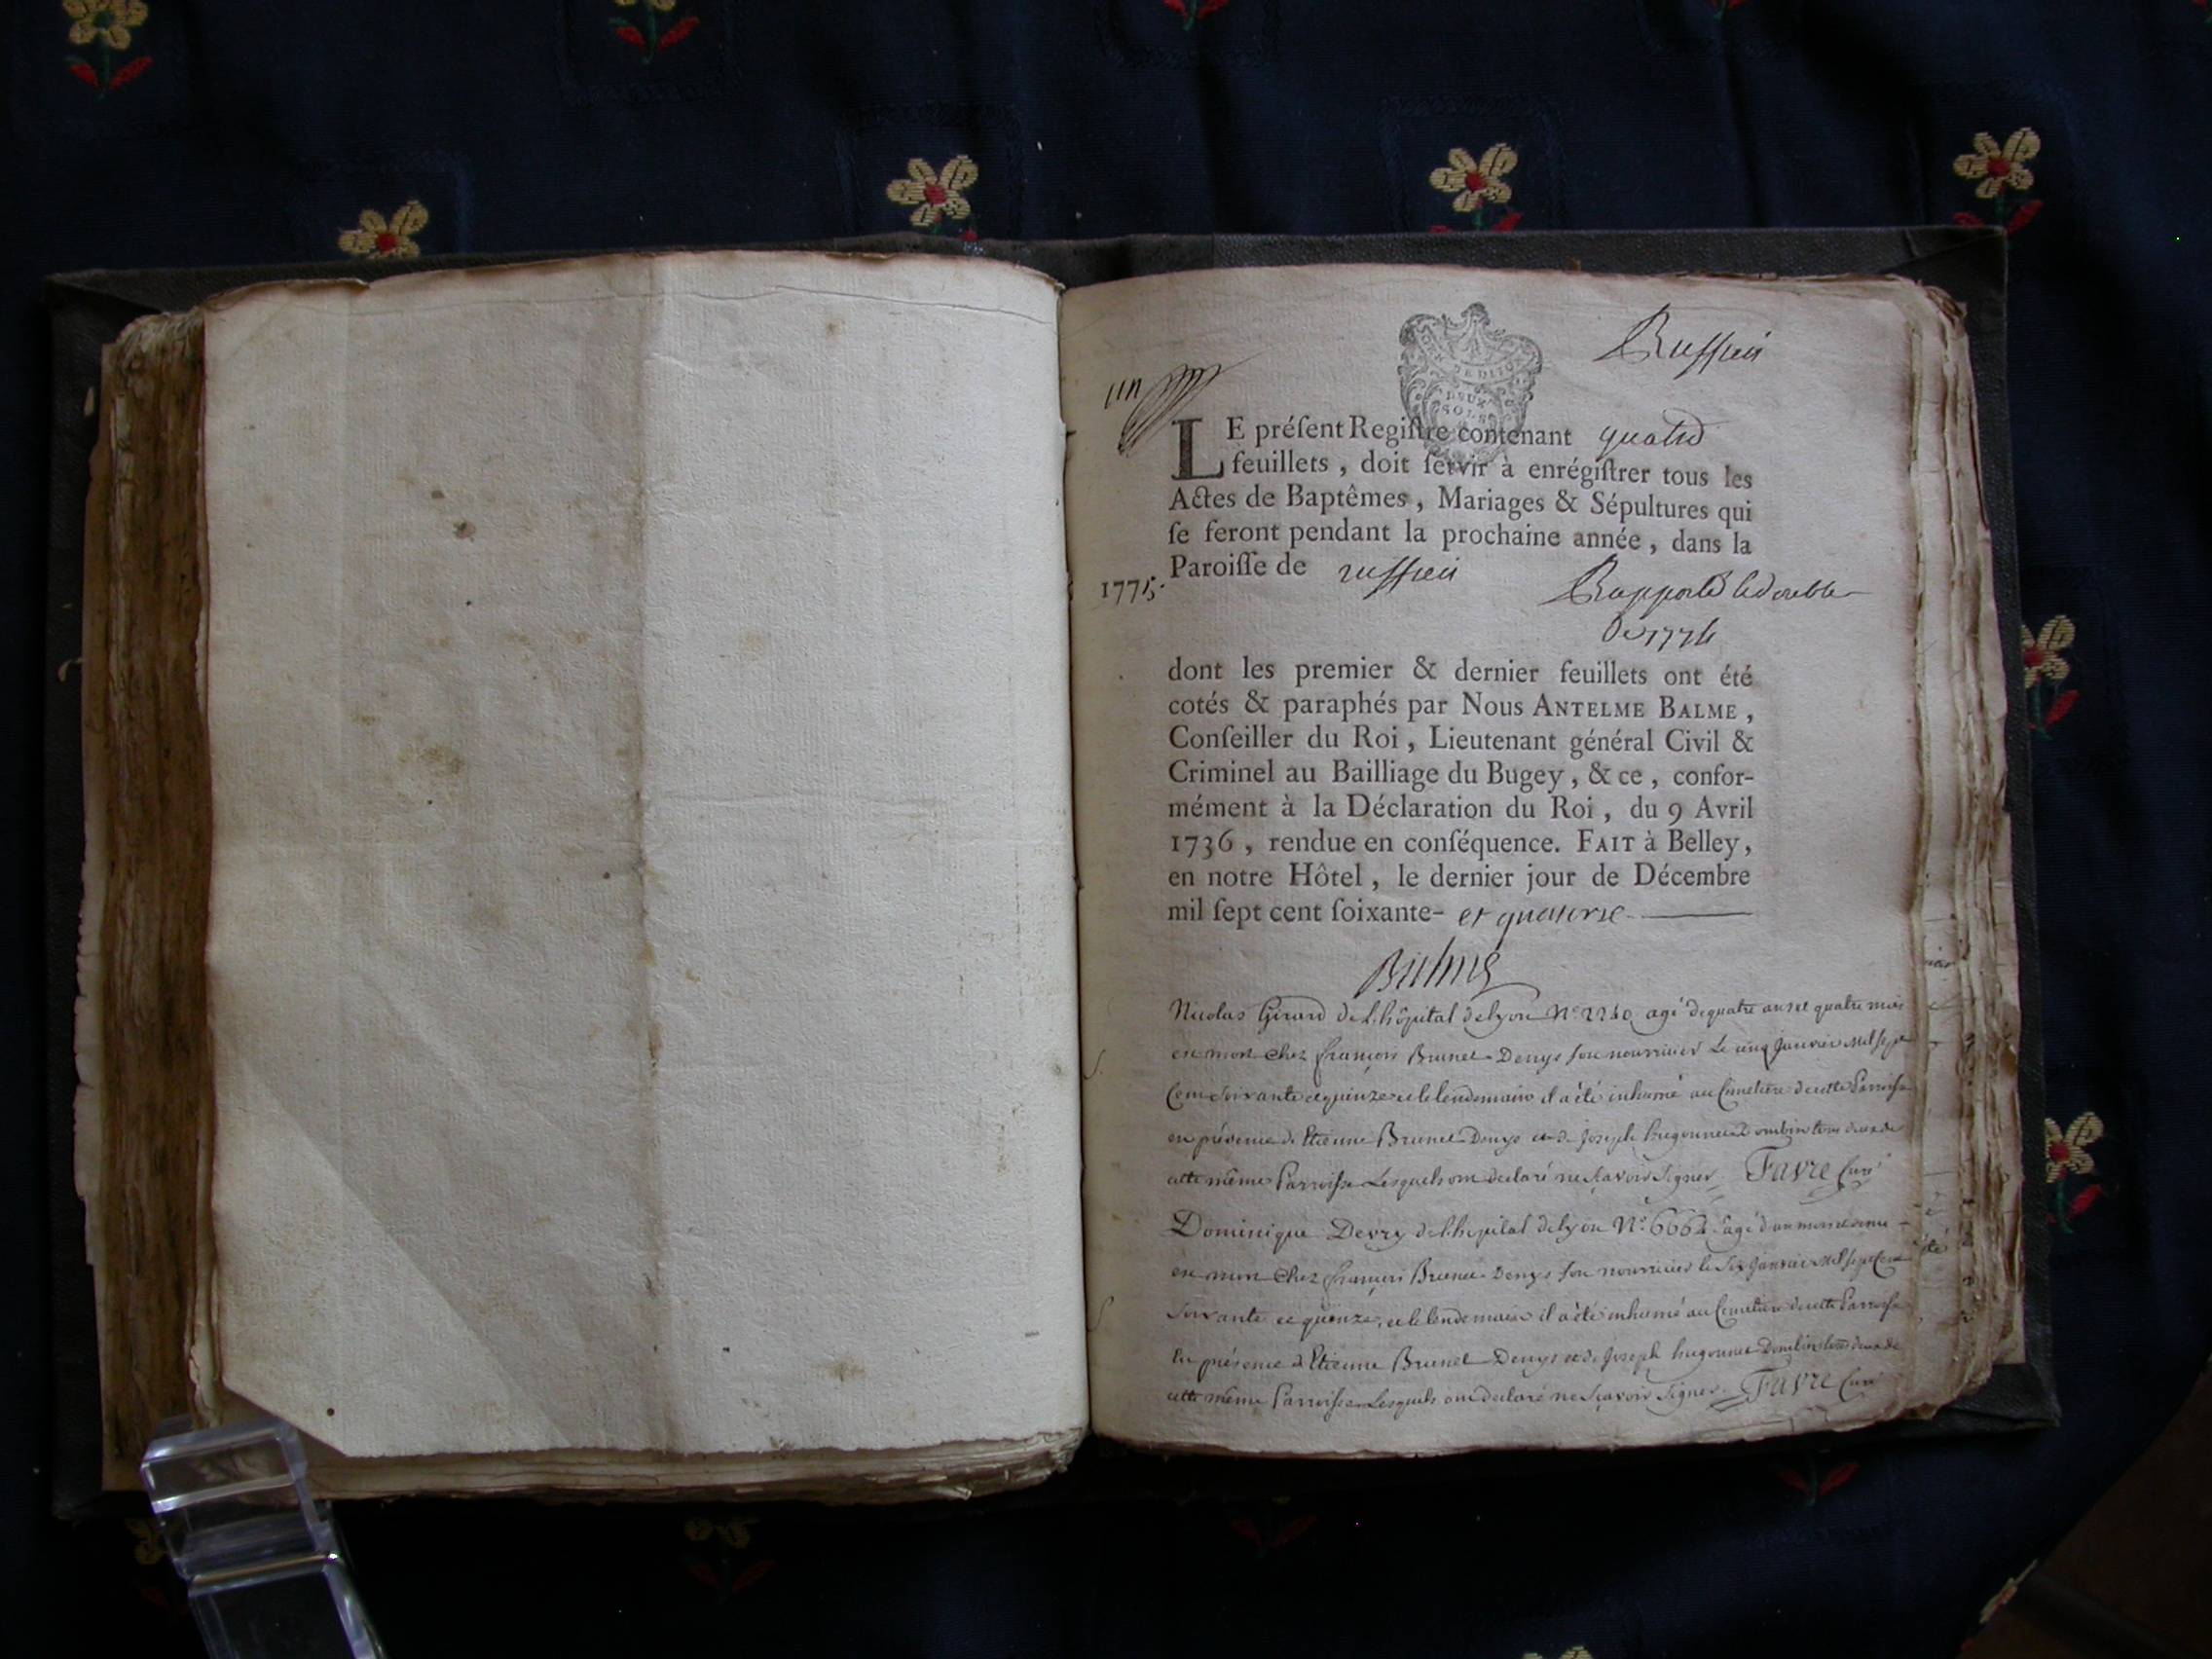 Ruffieu
un
DEUX
SOLS
LE préſent Regiſtre contenant quatre
feuillets, doit ſervir à enrégiſtrer tous les
Actes de Baptêmes, Mariages & Sépultures qui
ſe feront pendant la prochaine année, dans la
Paroiſſe de ruffieu
1775.
Rapporté le double
De 1774
dont les premier & dernier feuillets ont été
cotés & paraphés par Nous ANTELME BALME,
Conſeiller du Roi, Lieutenant général Civil &
Criminel au Bailliage du Bugey, & ce, confor-
mément à la Déclaration du Roi, du 9 Avril
1736, rendue en conſéquence. FAIT à Belley,
en notre Hôtel, le dernier jour de Décembre
mil ſept cent ſoixante- et quatorse
Balme
Nicolas Girard de L'hôpital de lyon N° 2240 agé de quatre ans et quatre mois
est mort chez françois Brunet-Denys son nourricier Le cinq Janvier Mil sept
Cent soixante et quinze et le lendemain il a été inhumé au Cimetiere de cette Parroisse
en présence d'Etienne Brunet-Denys et de Joseph hugonnet Dombin tous deux de
cette même Parroisse Lesquels ont declaré ne sçavoir Signer. Favre Curé
Dominique Devry de l'hopital de lyon N° 6662 agé d'un mois et demi
est mort chez françois Brunet-Denys son nourricier le Six Janvier Mil Sept Cent
soixante et quinze, et le lendemain il a été inhumé au Cimetiere de cette Parroisse
En présence d'Etienne Brunet-Denys et de Joseph hugonnet Dombin tous deux de
cette même Parroisse Lesquels ont declaré ne Sçavoir Signer. Favre Curé